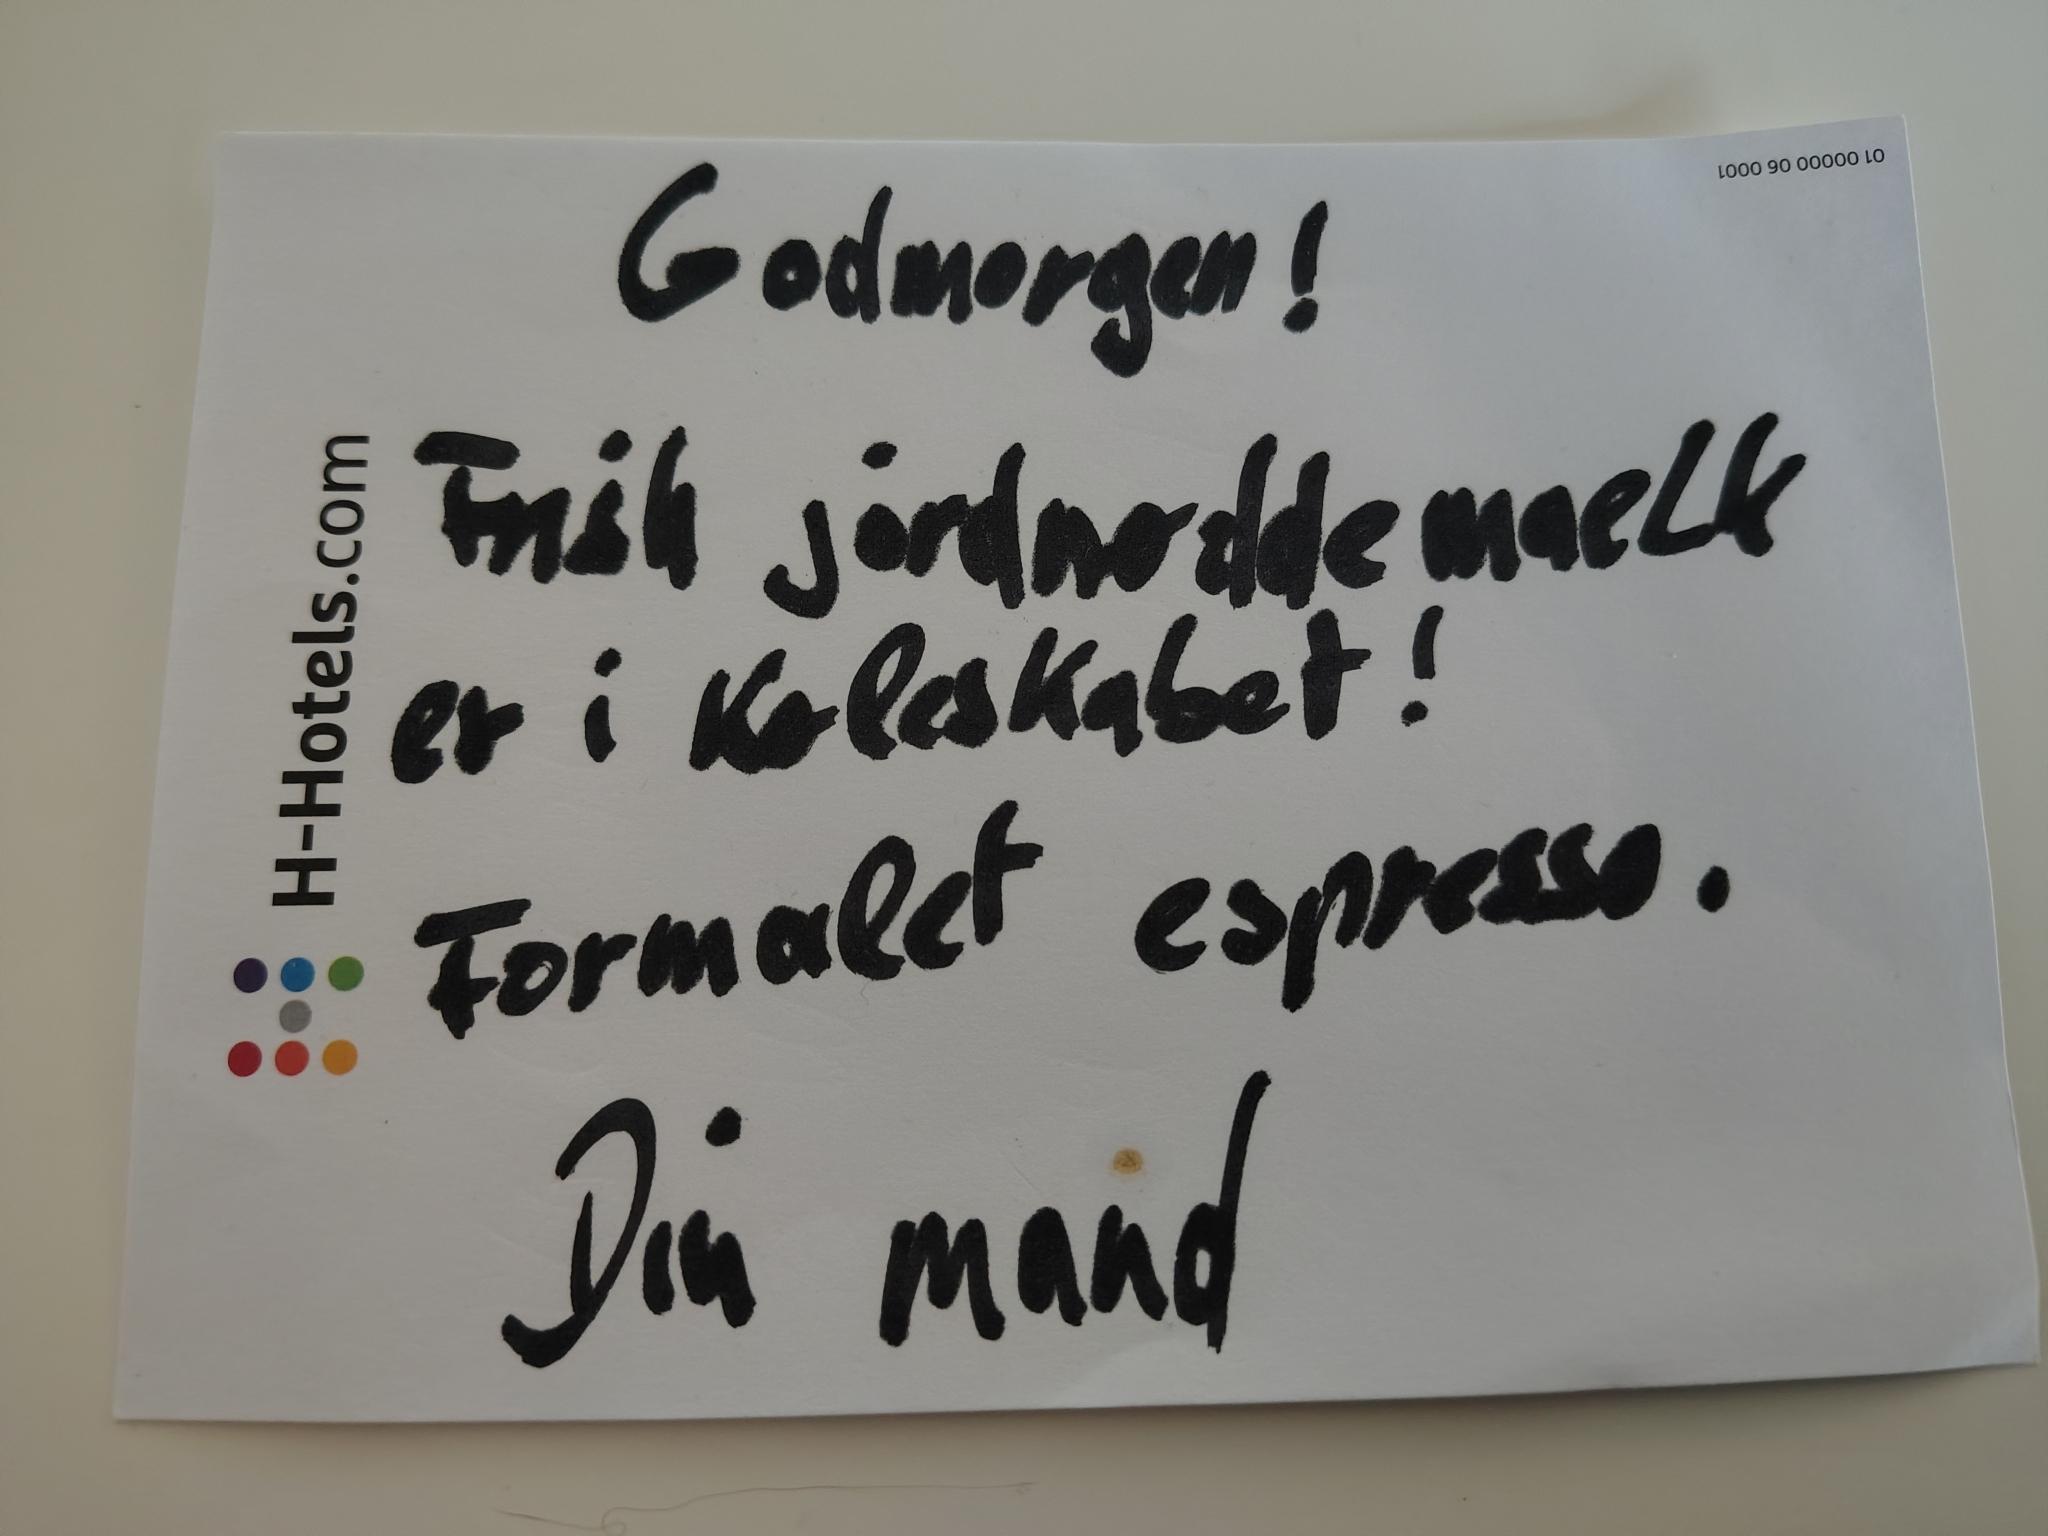 01 00000 06 0001
Godmorgen!
Frisk jordnøddemaelk
er i Køleskabet!
Formalet espresso.
Din mand
H-Hotels.com